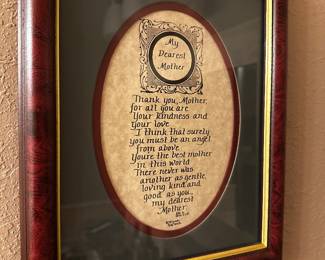 My
Dearest
Mother
Thank you, Mother,
for all you are
Your kindness and
your love
I think that surely
you must be an angel
from above
You're the best mother
in this world
There never was
another as gentle,
loving kind and
good as you...
my dearest
Mother.